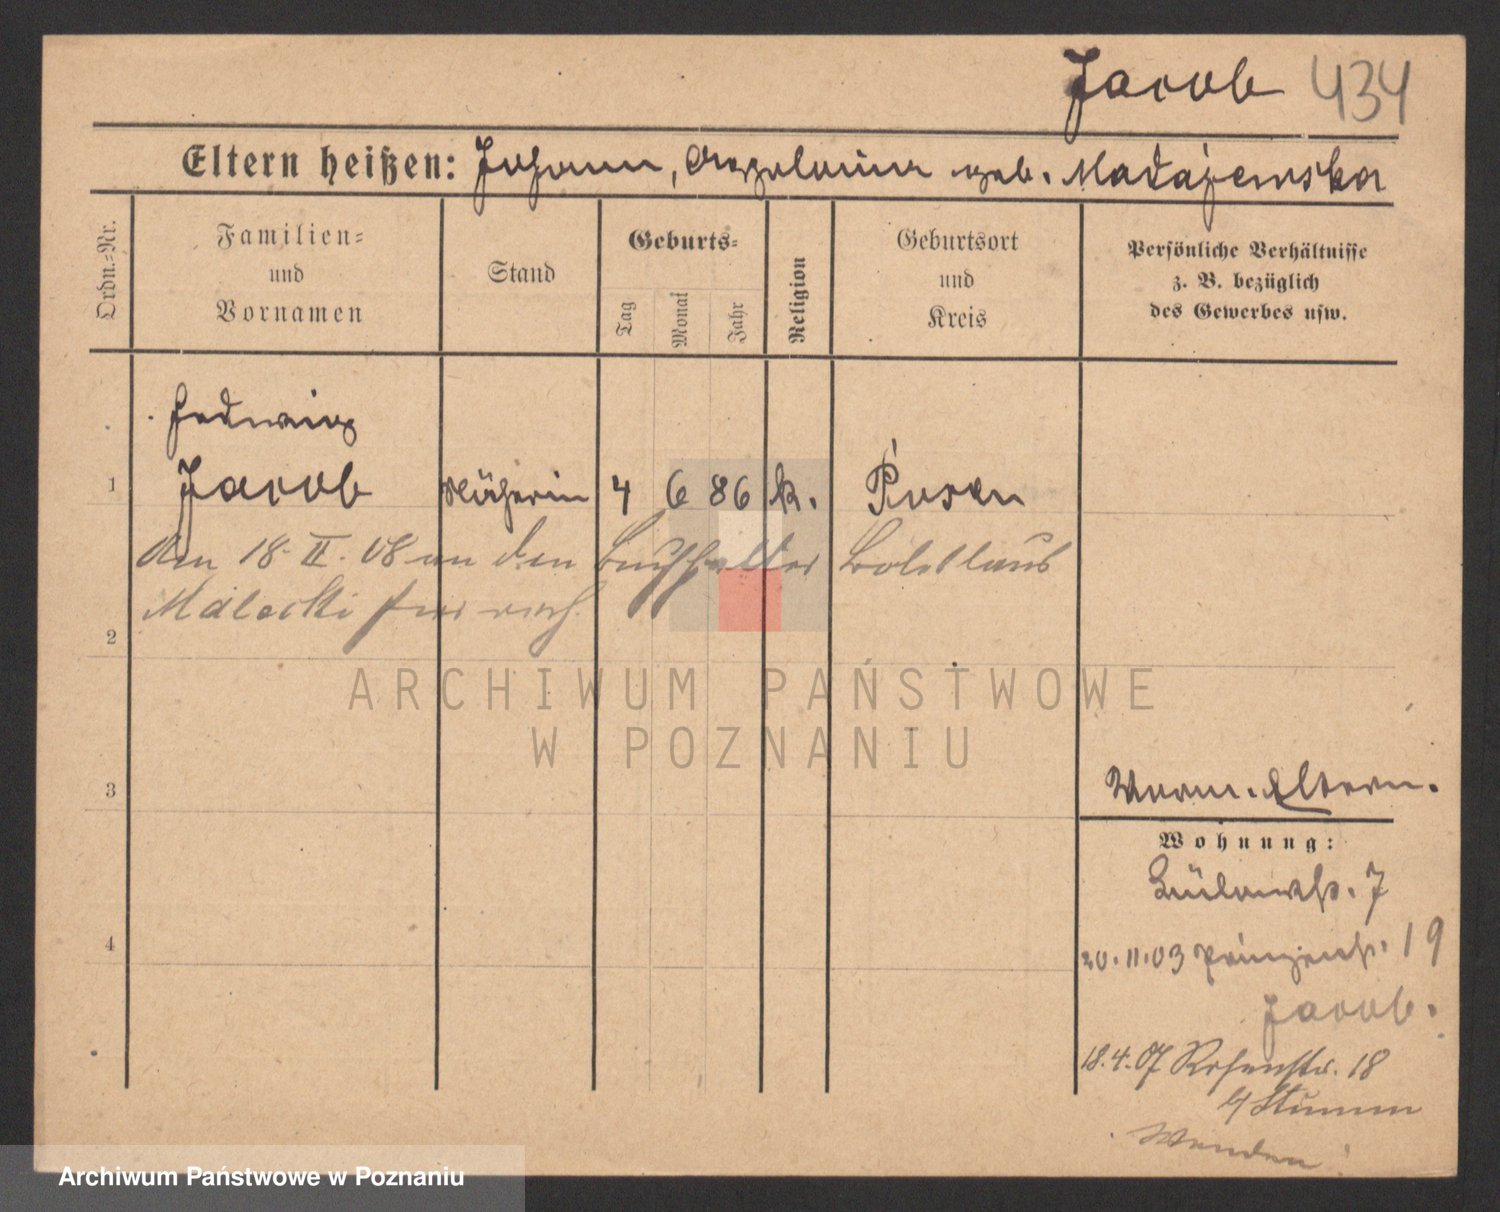 Jacob 434
Eltern heißen: Johann, Apolonia geb. Madajewska
Ordn.-Nr.
Familien-
und
Vornamen
Stand
Geburts-
Tag
Monat
Jahr
Religion
Geburtsort
und
Kreis
Persönliche Verhältnisse
z. B. bezüglich
des Gewerbes usw.
Hedwig
1 Jacob Näherin 4 6 86 k. Posen
den 18. II. 08 an den Buchhalter Boleslaus
Malecki
2
ARCHIWUM PAŃSTWOWE
W POZNANIU
3
Eltern.
Wohnung:
Bülowstr. 7
4
20.11.03 Prinzenstr. 19
Jacob.
18.4.07 Rosenstr. 18
b/ Stumm
Wenden!
Archiwum Państwowe w Poznaniu